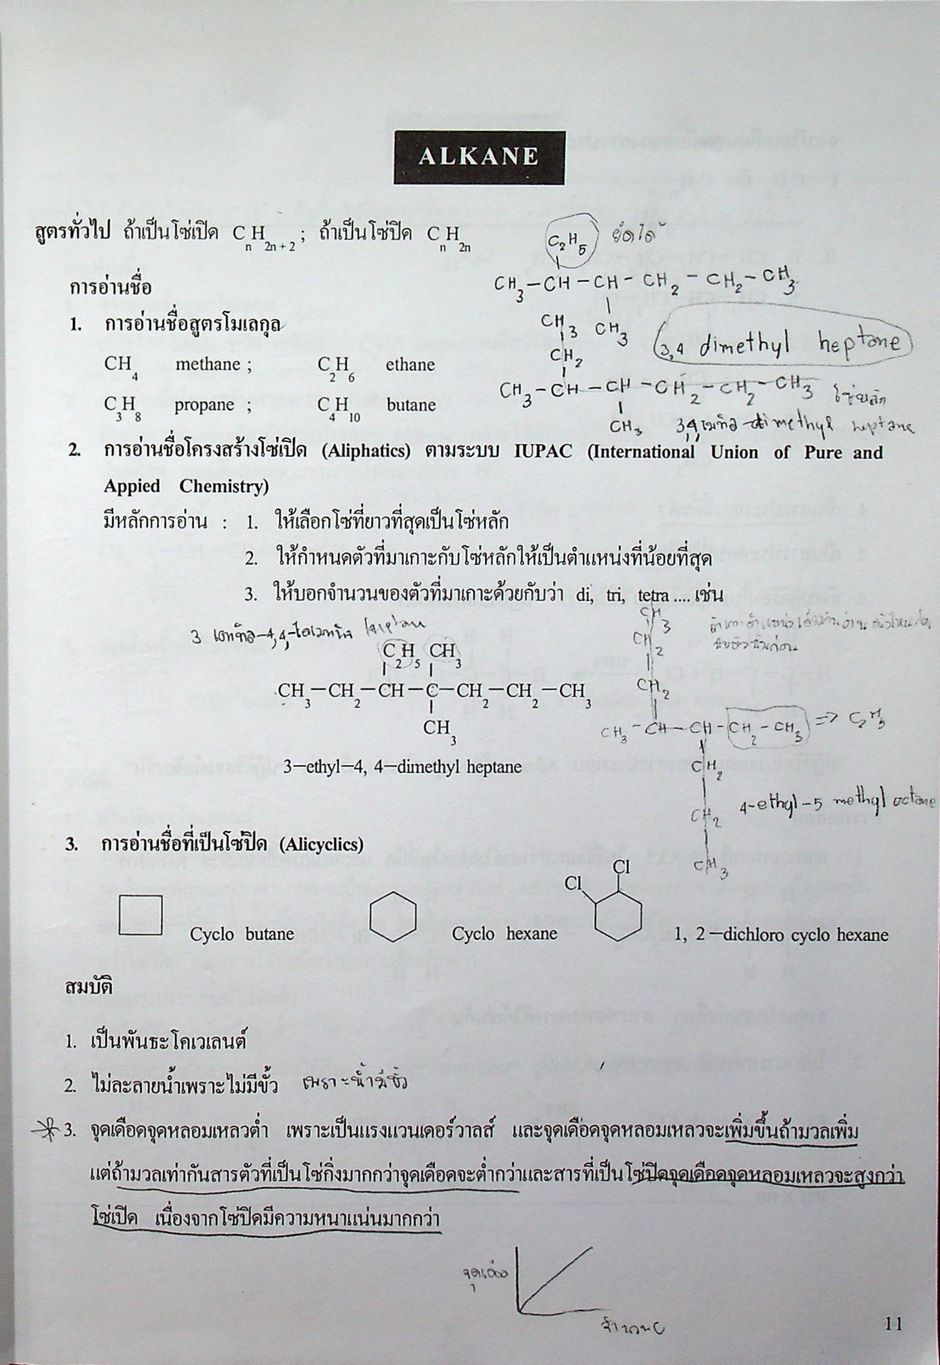 ALKANE
สูตรทั่วไป ถ้าเป็นโซ่เปิด CnH2n+2 ; ถ้าเป็นโซ่ปิด CnH2n
C2H5
CH3–CH–CH–CH2–CH2–CH3
CH3 CH3
การอ่านชื่อ
1. การอ่านชื่อสูตรโมเลกุล
3,4 dimethyl heptane
CH4 methane ; C2H6 ethane
CH2
CH3–CH–CH–CH2–CH2–CH3 โซ่หลัก
C3H8 propane ; C4H10 butane
CH3 dimethyl heptane
2. การอ่านชื่อโครงสร้างโซ่เปิด (Aliphatics) ตามระบบ IUPAC (International Union of Pure and
Appied Chemistry)
มีหลักการอ่าน : 1. ให้เลือกโซ่ที่ยาวที่สุดเป็นโซ่หลัก
2. ให้กำหนดตัวที่มาเกาะกับโซ่หลักให้เป็นตำแหน่งที่น้อยที่สุด
3. ให้บอกจำนวนของตัวที่มาเกาะด้วยกับว่า di, tri, tetra .... เช่น
CH3
CH2
C2H5 CH3
CH3–CH2–CH–C–CH2–CH2–CH3
CH2
CH3
CH3–CH–CH–CH2–CH3 => C2H5
3–ethyl–4, 4–dimethyl heptane
CH2
4-ethyl-5 methyl octane
CH2
3. การอ่านชื่อที่เป็นโซ่ปิด (Alicyclics)
CH3
Cl
Cl
Cyclo butane Cyclo hexane 1, 2–dichloro cyclo hexane
สมบัติ
1. เป็นพันธะโคเวเลนต์
2. ไม่ละลายน้ำเพราะไม่มีขั้ว เพราะน้ำมีขั้ว
3. จุดเดือดจุดหลอมเหลวต่ำ เพราะเป็นแรงแวนเดอร์วาลส์ และจุดเดือดจุดหลอมเหลวจะเพิ่มขึ้นถ้ามวลเพิ่ม
แต่ถ้ามวลเท่ากันสารตัวที่เป็นโซ่กิ่งมากกว่าจุดเดือดจะต่ำกว่าและสารที่เป็นโซ่ปิดจุดเดือดจุดหลอมเหลวจะสูงกว่า
โซ่เปิด เนื่องจากโซ่ปิดมีความหนาแน่นมากกว่า
11